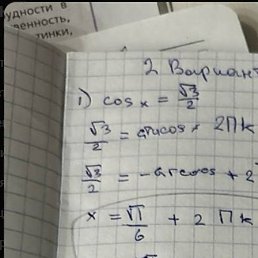 удности в
венность,
тинки,
2 Вариант
1) cos x = √3/2
√3/2 = arccos x 2πk
√3/2 = -arccos + 2
x = √π/6 + 2 πk